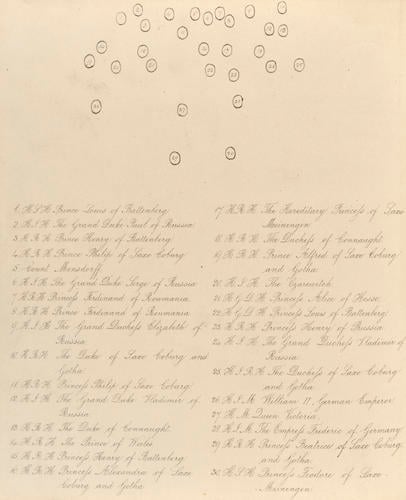 1. H.S.H. Prince Louis of Battenberg.
2. H.I.H. The Grand Duke Paul of Russia.
3. H.R.H. Prince Henry of Battenberg.
4. H.R.H. Prince Philip of Saxe Coburg
5. Count Mensdorff.
6. H.I.H. The Grand Duke Serge of Russia
7. H.R.H. Princess Ferdinand of Roumania.
8. H.R.H. Prince Ferdinand of Roumania
9. H.I.H. The Grand Duchess Elizabeth of
Russia.
10. H.R.H. The Duke of Saxe Coburg and
Gotha.
11. H.R.H. Princess Philip of Saxe Coburg.
12. H.I.H. The Grand Duke Vladimir of
Russia.
13. H.R.H. The Duke of Connaught.
14. H.R.H. The Prince of Wales.
15. H.R.H. Princess Henry of Battenberg.
16. H.R.H. Princess Alexandra of Saxe
Coburg and Gotha
17. H.R.H. The Hereditary Princess of Saxe
Meiningen.
18. H.R.H. The Duchess of Connaught.
19. H.R.H. Prince Alfred of Saxe Coburg
and Gotha.
20. H.I.H. The Czarevitch.
21. H.G.D.H. Princess Alice of Hesse.
22. H.G.D.H. Princess Louis of Battenberg.
23. H.R.H. Princess Henry of Prussia.
24. H.I.H. The Grand Duchess Vladimir of
Russia.
25. H.I.R.H. The Duchess of Saxe Coburg
and Gotha.
26. H.I.M. William II, German Emperor.
27. H.M. Queen Victoria.
28. H.I.M. The Empress Frederic of Germany.
29. H.R.H. Princess Beatrice of Saxe Coburg
and Gotha.
30. H.S.H. Princess Feodore of Saxe-
Meiningen.